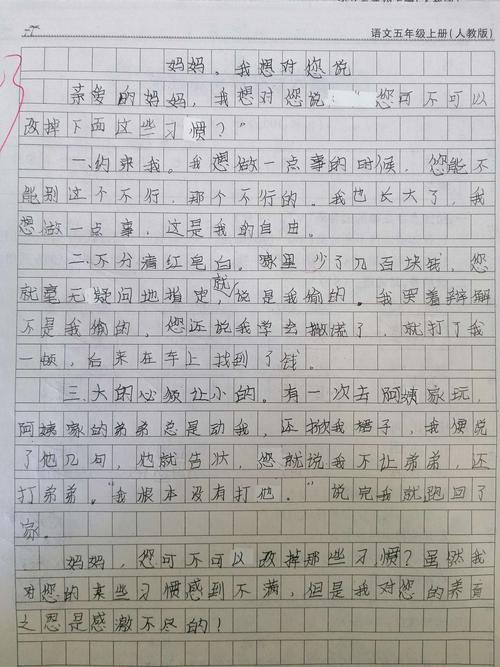 语文五年级上册(人教版)
妈妈,我想对您说
亲爱的妈妈,我想对您说:“您可不可以
改掉下面这些习惯?”
一.约束我。我想做一点事的时候,您能不
能别这个不行,那个不行的。我也长大了,我
想做一点事,这是我的自由。
二.不分清红皂白。家里少了几百块钱,您
就毫无疑问地指定,就说是我偷的。我哭着辩解
不是我偷的,您还说我学会撒谎了,就打了我
一顿,后来在车上找到了钱。
三.大的必须让小的。有一次去阿姨家玩,
阿姨家的弟弟总是动我,还掀我裙子,我便说
了他几句,他就告状,您就说我不让弟弟,还
打弟弟。“我根本没有打他。”说完我就跑回了
家。
妈妈,您可不可以改掉那些习惯?虽然我
对您的某些习惯感到不满,但是我对您的养育
之恩是感激不尽的!